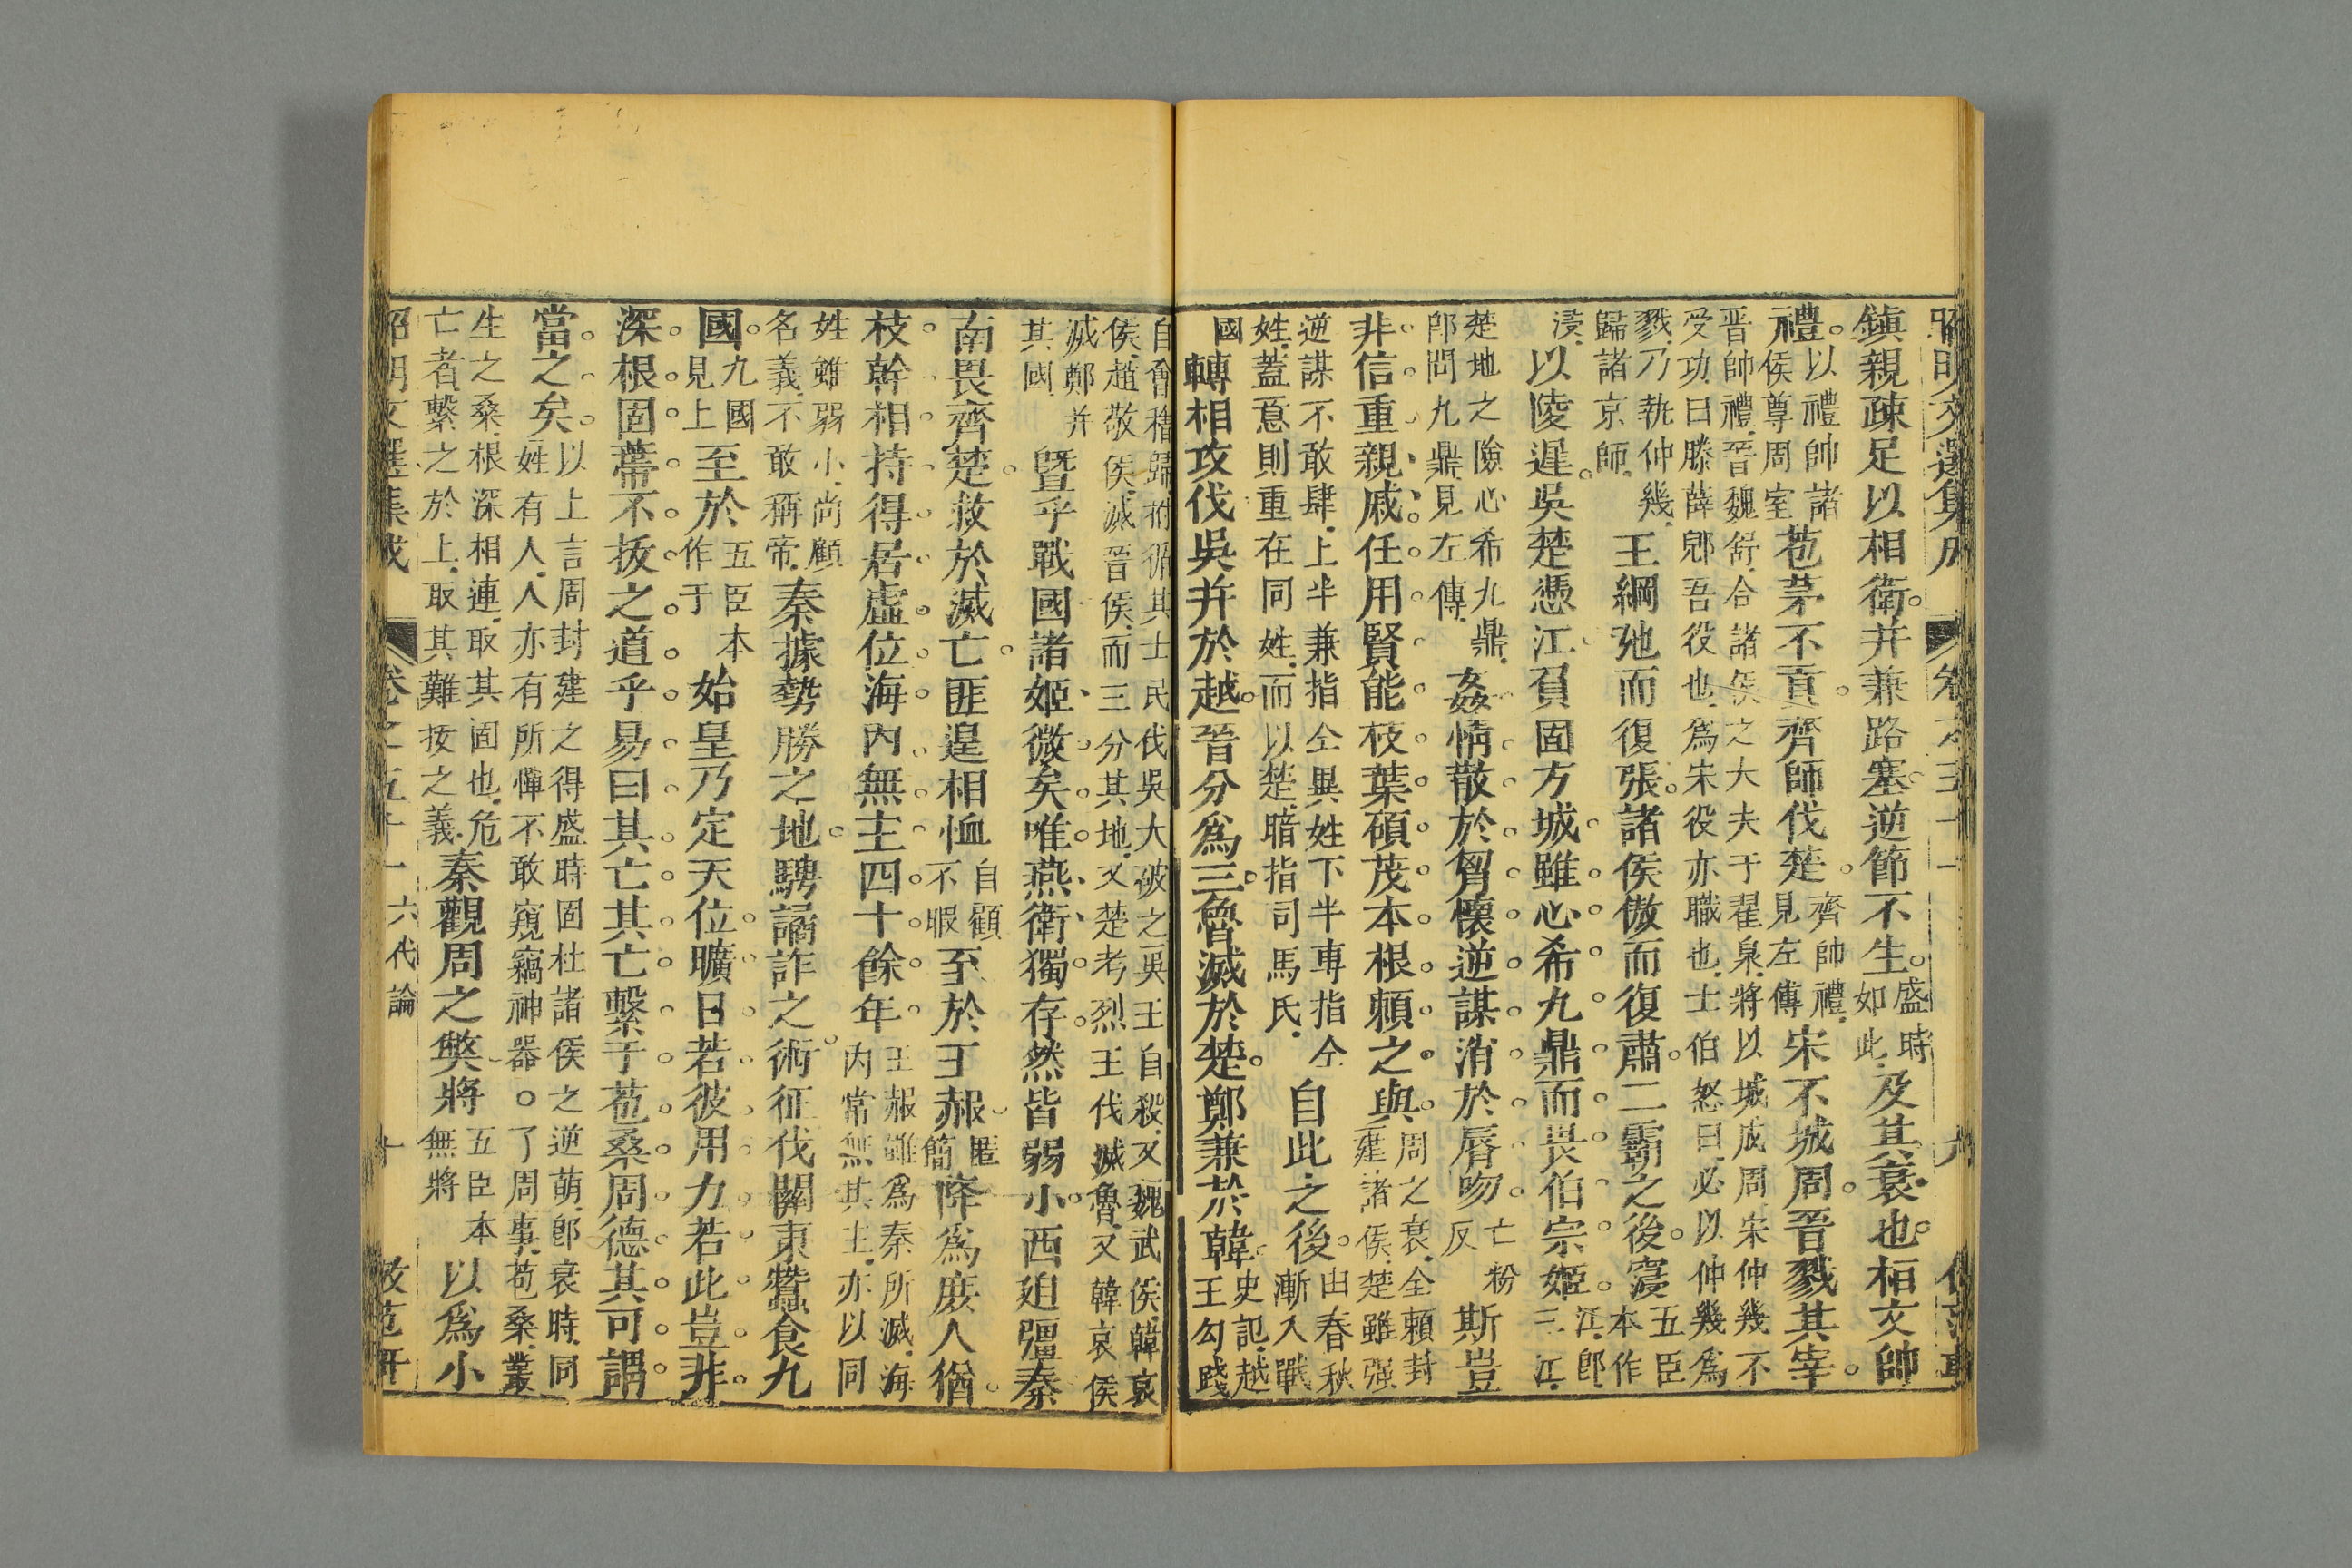 鎮親疎足以相衛并兼路塞逆節不生盛時如此及其衰也桓文帥
禮以禮帥諸侯尊周室苞茅不貢齊師伐楚齊帥禮見左傳宋不城周晉戮其宰
晉帥禮晉魏舒合諸侯之大夫于翟泉將以城成周宋仲幾不
受功曰滕薛郳吾役也為宋役亦職也士伯怒曰必以仲幾為
戮乃執仲幾歸諸京師王綱弛而復張諸侯傲而復肅二霸之後寖五臣本作
浸以陵遲吳楚憑江負固方城雖心希九鼎而畏伯宗姬江即三江
楚地之險心希九鼎即問九鼎見左傳姦情散於胷懷逆謀消於唇吻亡粉反斯豈
非信重親戚任用賢能枝葉碩茂本根賴之與周之衰全賴封建諸侯楚雖强
逆謀不敢肆上半兼指仝異姓下半專指仝
姓蓋意則重在同姓而以楚暗指司馬氏自此之後由春秋漸入戰
國轉相攻伐吳并於越晉分為三魯滅於楚鄭兼於韓史記越王勾踐
自會稽歸拊循其士民伐吳大破之吳王自殺又魏武侯韓哀
侯趙敬侯滅晉侯而三分其地又楚考烈王伐滅魯又韓哀侯
滅鄭并其國暨乎戰國諸姬微矣唯燕衛獨存然皆弱小西迫彊秦
南畏齊楚救於滅亡匪遑相恤自顧不暇至於王赧匿簡降為庶人猶
枝幹相持得居虛位海內無主四十餘年王赧雖為秦所滅海內常無其主亦以同
姓雖弱小尚顧名義不敢稱帝秦據勢勝之地騁譎詐之術征伐關東蠶食九
國九國見上至於五臣本作于始皇乃定天位曠日若彼用力若此豈非
深根固蔕不拔之道乎易曰其亡其亡繫于苞桑周德其可謂
當之矣以上言周封建之得盛時固杜諸侯之逆萌即衰時同
姓有人人亦有所憚不敢窺竊神器○了周事苞桑叢
生之桑根深相連取其固也危
亡者繫之於上取其難拔之義秦觀周之獘將五臣本無將以為小
昭明文選集成 卷之五十一 六代論 十